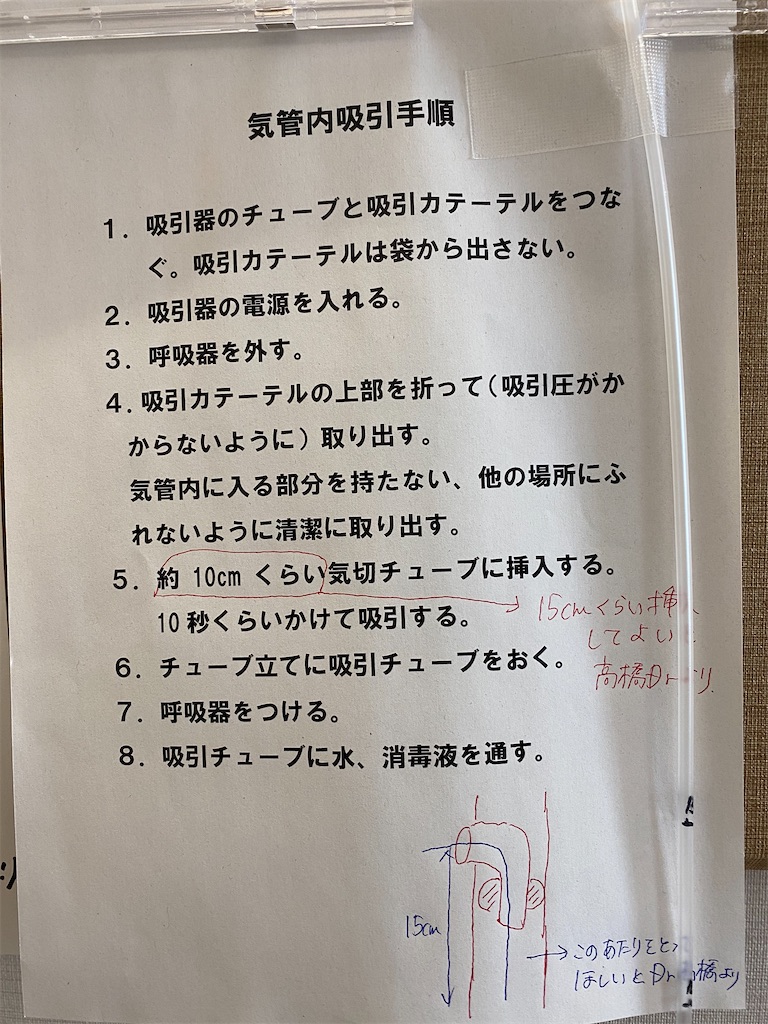 気管内吸引手順
1．吸引器のチューブと吸引カテーテルをつな
ぐ。吸引カテーテルは袋から出さない。
2．吸引器の電源を入れる。
3．呼吸器を外す。
4．吸引カテーテルの上部を折って（吸引圧がか
からないように）取り出す。
気管内に入る部分を持たない、他の場所にふ
れないように清潔に取り出す。
5．約 10cm くらい気切チューブに挿入する。
10秒くらいかけて吸引する。
15cmくらい挿
してよい
高橋Dr
6．チューブ立てに吸引チューブをおく。
7．呼吸器をつける。
8．吸引チューブに水、消毒液を通す。
15cm
このあたりをと
ほしいとDr 橋より